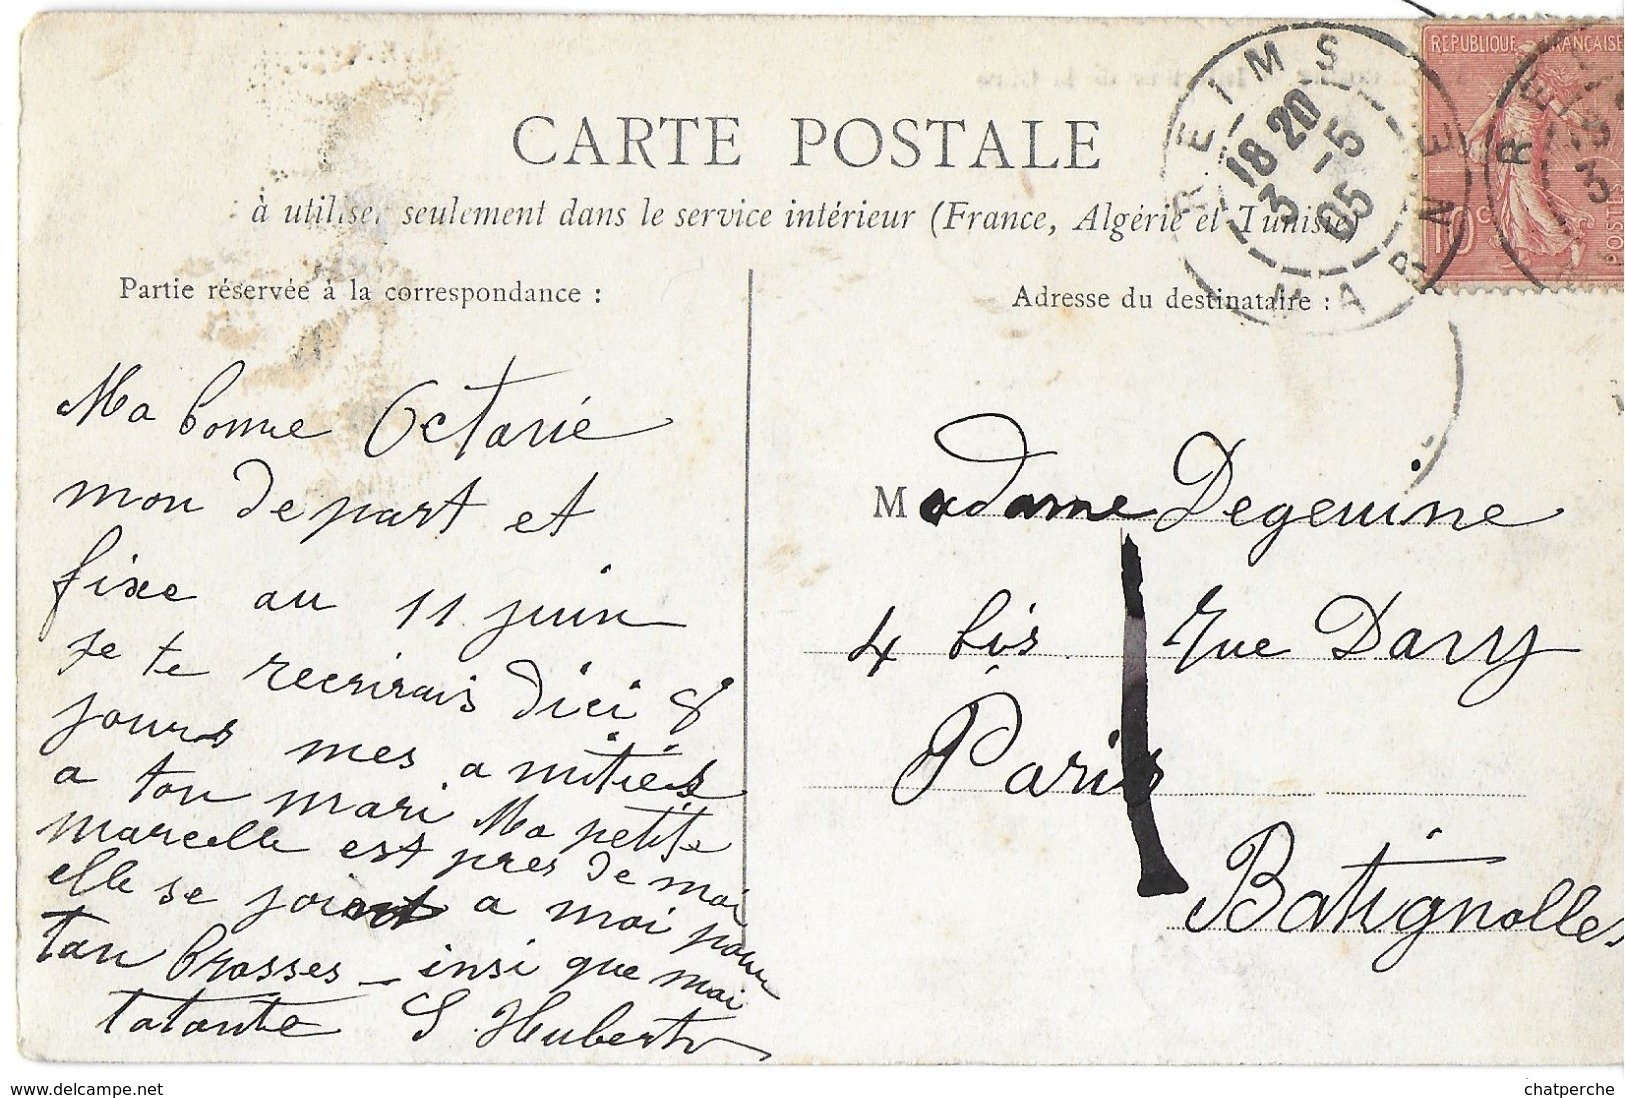 CARTE POSTALE
à utiliser seulement dans le service intérieur (France, Algérie et Tunisie)
Partie réservée à la correspondance :
Adresse du destinataire :
REIMS
MARNE
18 20
3 -5
05
REPUBLIQUE FRANÇAISE
10 c
POSTES
Ma bonne Octavie
mon depart et
fixe au 11 juin
je te recrirais dici 8
jours mes amitiés
a ton mari Ma petite
marcelle est pres de moi
elle se joint a moi pour
tan brasses - insi que moi
tatante S. Hubert
Madame Degenine
4 bis rue Davy
Paris
Batignolles
www.delcampe.net
chatperche